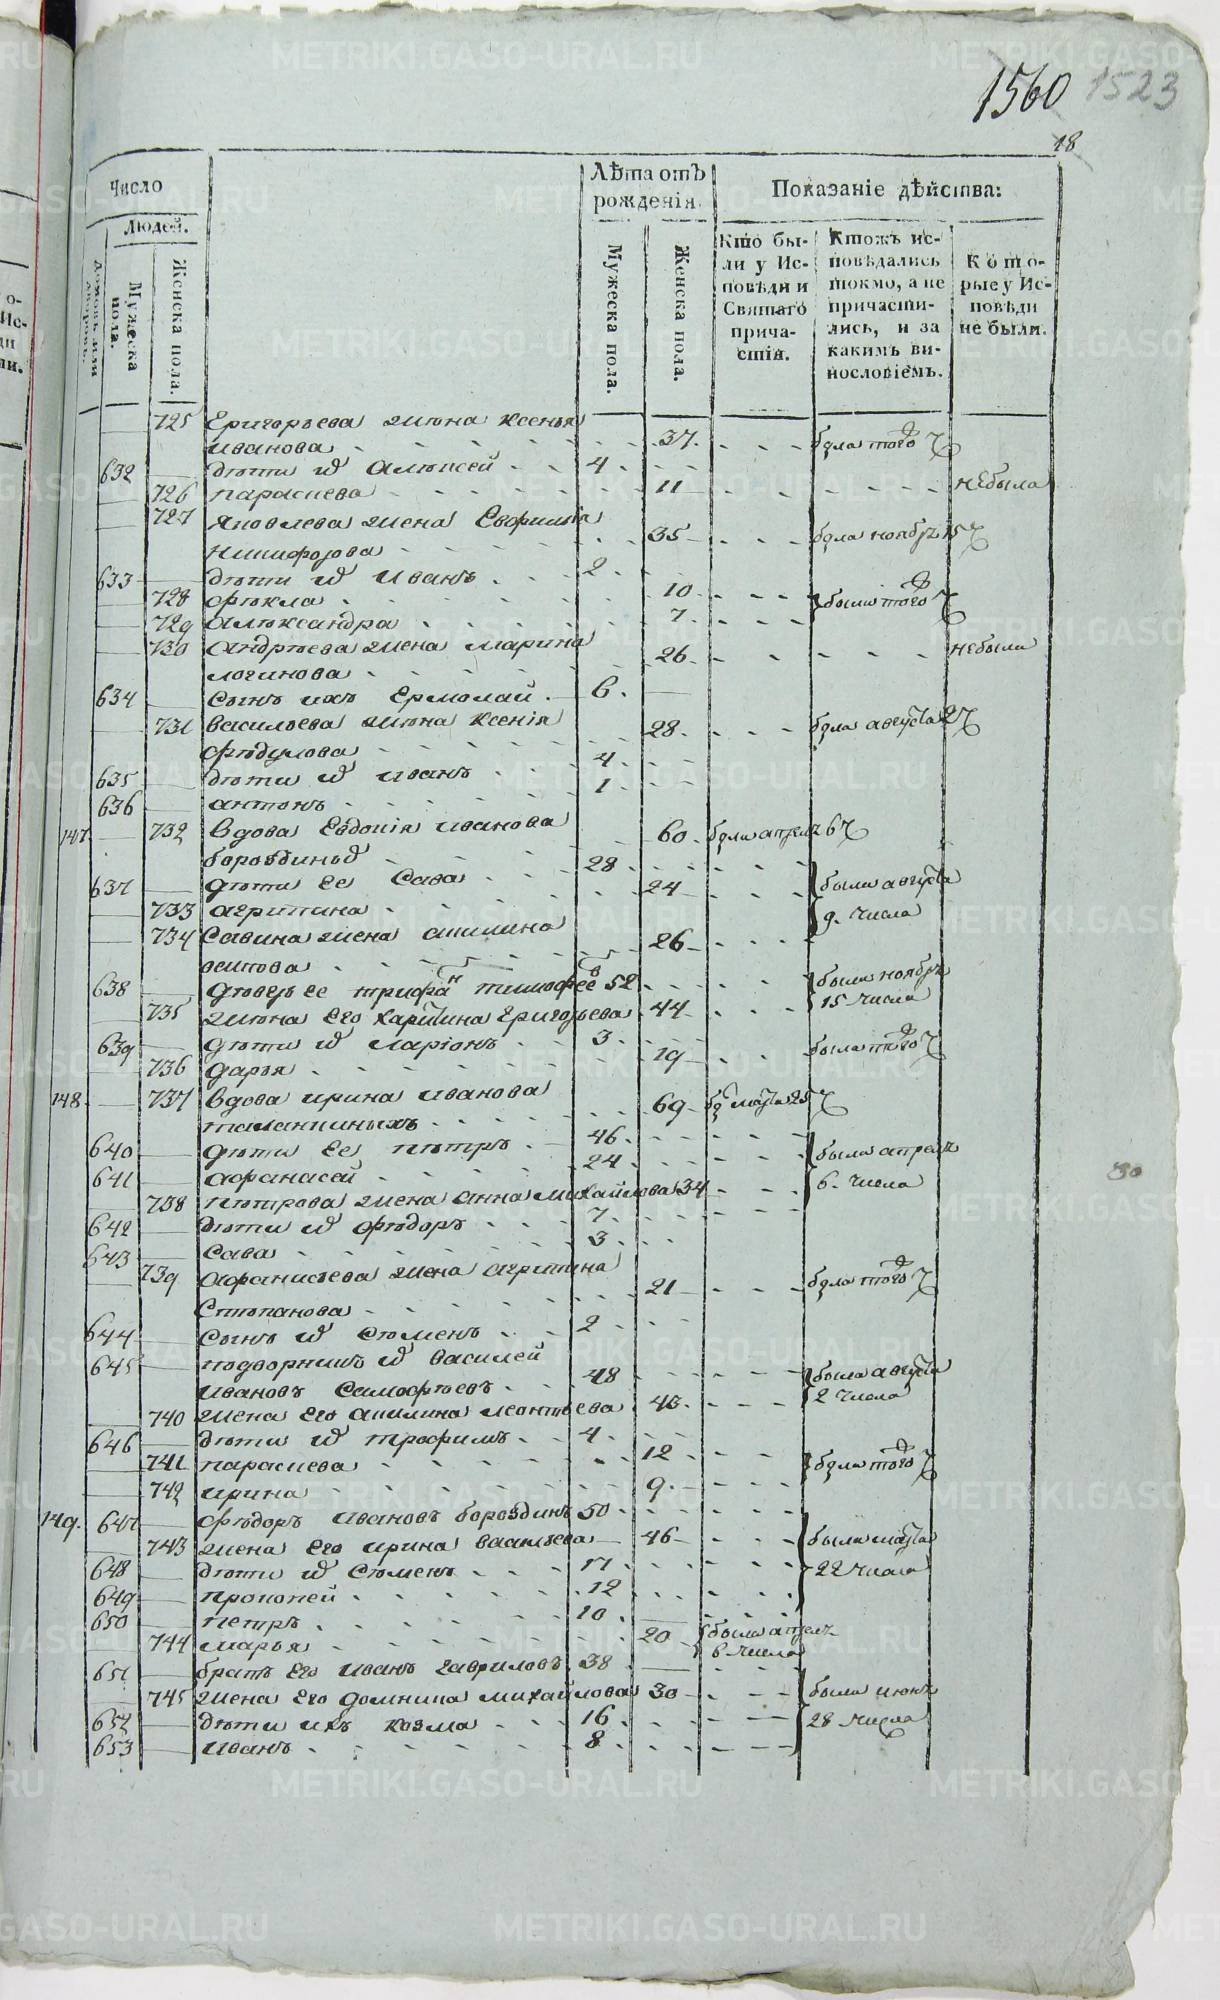 1560 1523
18
Число
Людей.
Домовъ или дворовъ.
Мужеска пола.
Женска пола.
Лѣта отъ рожденія.
Мужеска пола.
Женска пола.
Показаніе дѣйства:
Кто бы-
ли у Ис-
повѣди и
Святаго
прича-
стія.
Ктожъ ис-
повѣдались
токмо, а не
причасти-
лись, и за
какимъ ви-
нословіемъ.
Кото-
рые у Ис-
повѣди
не были.
725 Григорьева жена Ксенья
Иванова 37 была того Ч
632 дѣти Ѿ Алексей 4
726 парасцева 11 небыла
727 Яковлева жена Евфимія
Никифорова 35 была ноябрь 15 Ч
633 дѣти Ѿ Иванъ 2
728 Фекла 10 были того Ч
729 Александра 7
730 Андреева жена марина
логинова 26 небыла
634 Сынъ ихъ Ермолай 6
731 Васильева жена Ксенія
Федулова 28 была августа 2 Ч
635 дѣти Ѿ Иванъ 4
636 антонъ 1
147 732 Вдова Евдокія Иванова 60 была апрель 6 Ч
бороздиныхъ
637 дѣти Ее Сава 28 были августа
733 агрипина 24 9. числа
734 Савина жена акилина
осипова 26
638 дѣверь ее трифанъ тимофеевъ 52 были ноябрь
735 жена Его Харитина Григорьева 44 15 числа
639 дѣти Ѿ Ларіонъ 3
736 дарья 19 была того Ч
148. 737 Вдова ирина иванова 69 бы марта 25 Ч
таланкиныхъ
640 дѣти Ее петръ 46 были апрель
641 афанасей 24 6. числа
738 петрова жена анна михайлова 34
642 дѣти Ѿ федоръ 7
643 Сава 3
739 афанасьева жена агрипина
Степанова 21 была того Ч
644 Сынъ Ѿ Семенъ 2
645 подворникъ Ѿ Василей
Ивановъ Самофеевъ 48 были августа
740 жена Его акилина леонтьева 2 числа
646 дѣти Ѿ трофимъ 4
741 парасцева 12 была того Ч
742 ирина 9
149. 647 федоръ ивановъ бороздинъ 50
743 жена Его ирина васильева 46 были марта
648 дѣти Ѿ Семенъ 17 22 числа
649 прокопей 12
650 петръ 10
744 марья 20 были апрель
6 числа
651 братъ Его Иванъ гавриловъ 38
745 жена Его домника михайлова 30 были июнь
652 дѣти ихъ козма 16 28 числа
653 иванъ 8
30